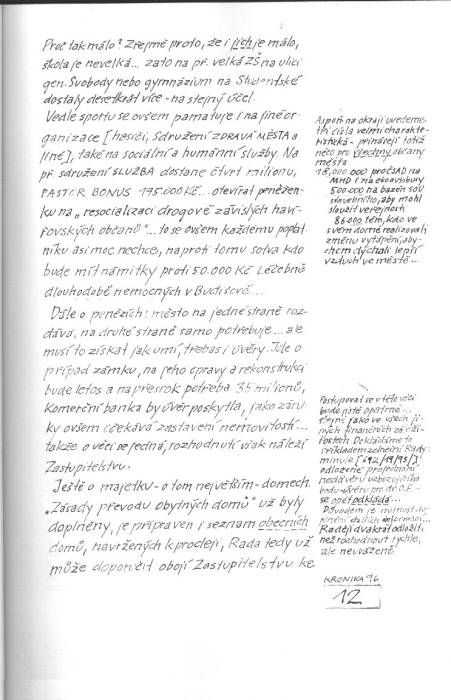 Proč tak málo? Zřejmě proto, že i jich je málo,
škola je nevelká... zato na př. velká ZŠ na ulici
gen. Svobody nebo gymnázium na Studentské
dostaly desetkrát více - na stejný účel.
Vedle sportu se ovšem pamatuje i na jiné or-
ganizace [hasiči, sdružení ZDRAVÁ MĚSTA a
jiné], také na sociální a humánní služby. Na
př. sdružení SLUŽBA dostane čtvrt milionu,
PASTOR BONUS 175.000 Kč... otevírat peněžen-
ku na „resocializaci drogově závislých haví-
řovských občanů"... to se ovšem každému poplat-
níku asi moc nechce, naproti tomu sotva kdo
bude mít námitky proti 50.000 Kč Léčebně
dlouhodobě nemocných v Budišově...
Dále o penězích: město na jedné straně roz-
dává, na druhé straně samo potřebuje... ale
musí to získat jak umí, třebas i úvěry. Jde o
případ zámku, na jeho opravy a rekonstrukci
bude letos a napřesrok potřeba 35 milionů,
komerční banka by úvěr poskytla, jako záru-
ky ovšem očekává zastavení nemovitostí...
takže o věci se jedná, rozhodnutí však náleží
Zastupitelstvu.
Ještě o majetku - o tom největším - domech.
„Zásady převodu obytných domů" už byly
doplněny, je připraven i seznam obecních
domů, navržených k prodeji, Rada tedy už
může doporučit obojí Zastupitelstvu ke
Aspoň na okraji uvedeme
tři čísla velmi charakte-
ristická - přinášejí totiž
něco pro všechny občany
města
18,000.000 pro ČSAD na
MHD i na ekoautobusy
500.000 na bazén SOU
stavebního, aby mohl
sloužit veřejnosti
86.000 těm, kdo ve
svém domě realizovali
změnu vytápění, aby-
chom dýchali lepší
vzduch ve městě...
Postupovat se v této věci
bude jistě opatrně...
stejně jako ve všech ji-
ných finančních záleži-
tostech. Dokládáme to
příkladem z dnešní Rady:
minule [692/19/95/]
odložené projednání
nedávéru vzbuzujícího
bodu - úvěru pro dr. O.F.
se opět odkládá...
Důvodem je nutnost do-
plnění dalších informací...
Raději dvakrát odložit,
než rozhodnout rychle,
ale neuváženě.
KRONIKA '96
12